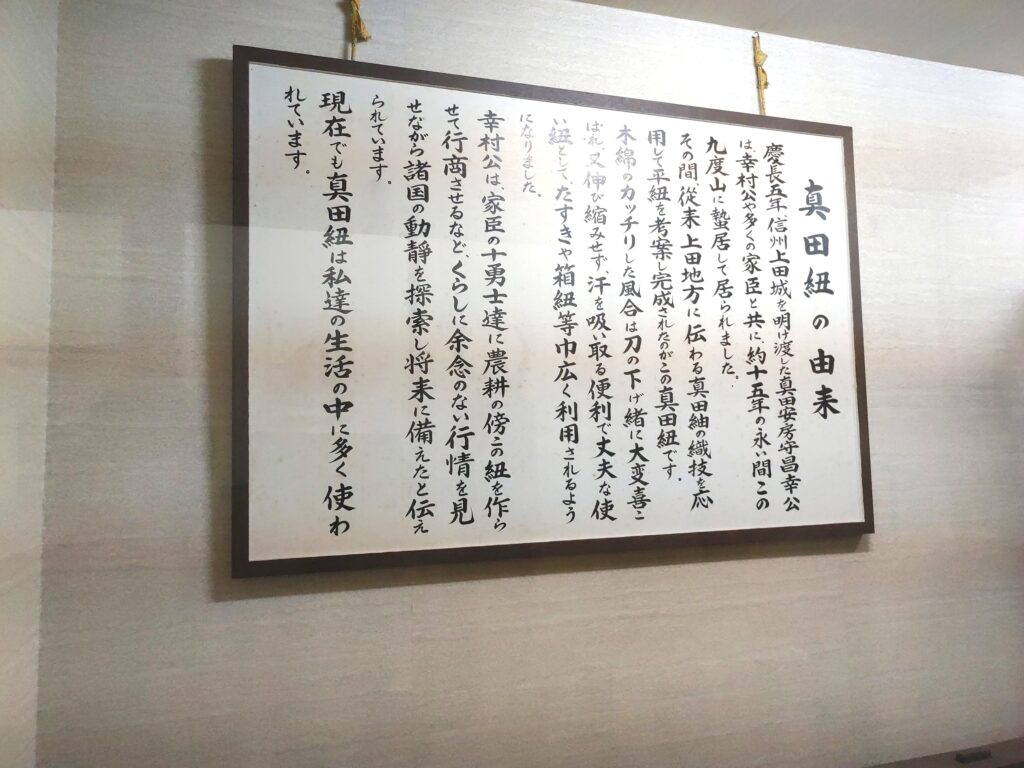 真田紐の由来
慶長五年、信州上田城を明け渡した真田安房守昌幸公
は、幸村公や多くの家臣と共に、約十五年の永い間この
九度山に蟄居して居られました。
その間従来上田地方に伝わる真田紬の織技を応
用して平紐を考案し完成されたのがこの真田紐です。
木綿のカッチリした風合は刀の下げ緒に大変喜こ
ばれ、又伸び縮みせず、汗を吸い取る便利で丈夫な使
い紐として、たすきや箱紐等巾広く利用されるよう
になりました。
幸村公は、家臣の十勇士達に農耕の傍この紐を作ら
せて行商させるなど、くらしに余念のない行情を見
せながら諸国の動静を探索し将来に備えたと伝え
られています。
現在でも真田紐は私達の生活の中に多く使わ
れています。